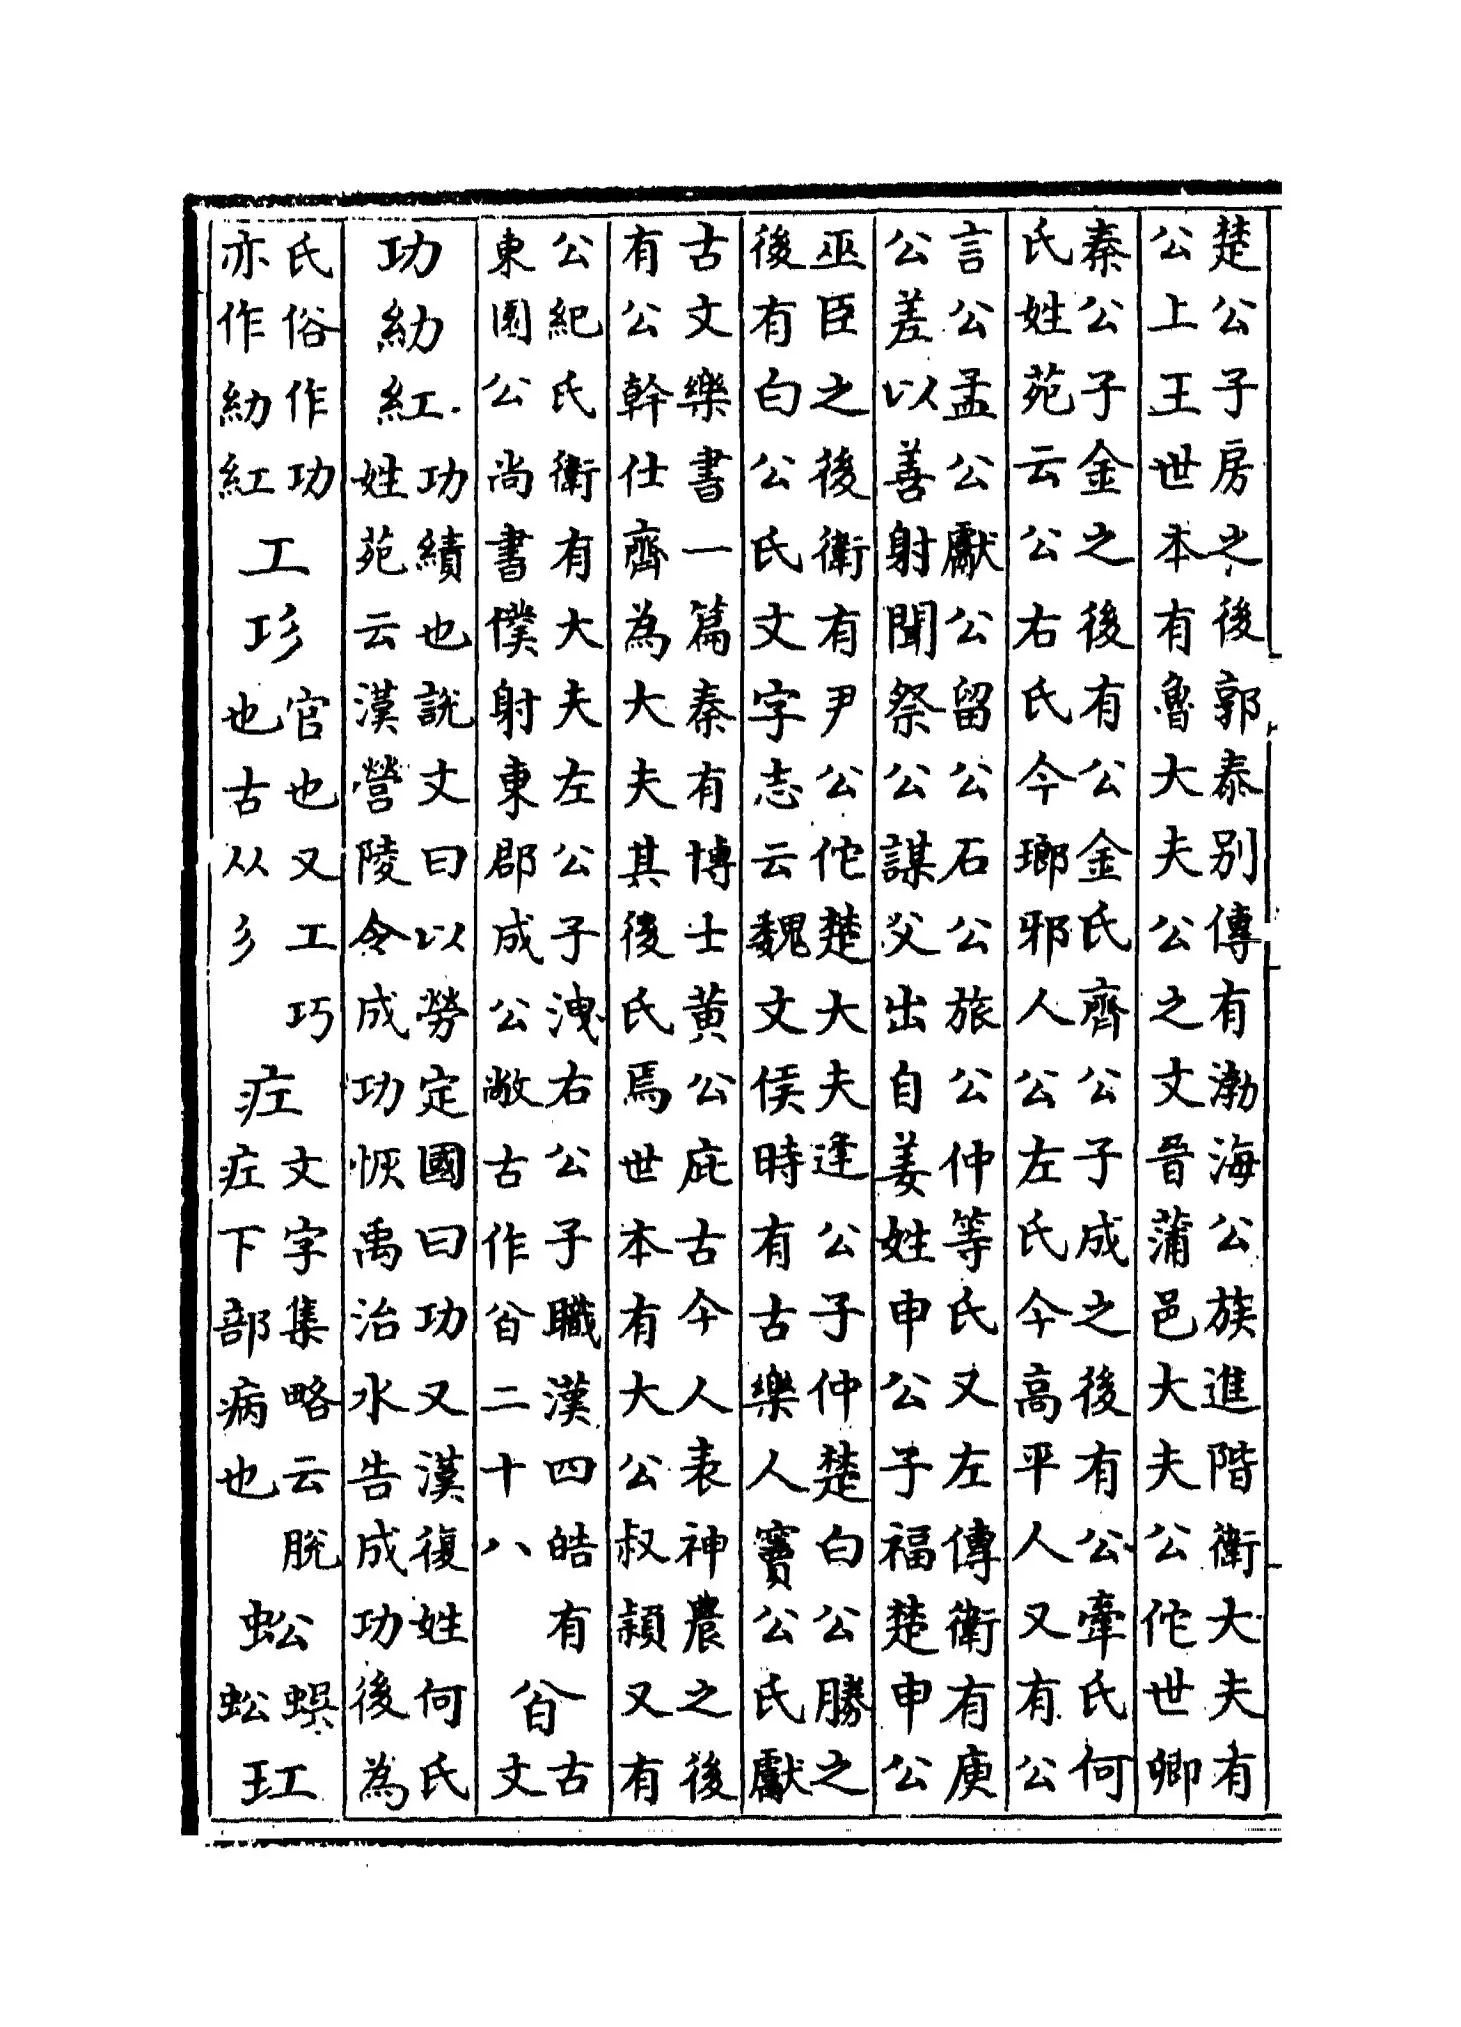 楚公子房之後郭泰別傳有渤海公族進階衛大夫有
公上王世本有魯大夫公之文晉蒲邑大夫公佗世卿
秦公子金之後有公金氏齊公子成之後有公牽氏何
氏姓苑云公右氏今瑯邪人公左氏今高平人又有公
言公孟公獻公留公石公旅公仲等氏又左傳衛有庾
公差以善射聞祭公謀父出自姜姓申公子福楚申公
巫臣之後衛有尹公佗楚大夫逢公子仲楚白公勝之
後有白公氏文字志云魏文侯時有古樂人竇公氏獻
古文樂書一篇秦有博士黄公庇古今人表神農之後
有公幹仕齊為大夫其後氏焉世本有大公叔潁又有
公紀氏衛有大夫左公子洩右公子職漢四皓有
東園公尚書僕射東郡成公敞古作㒶二十八
㒶
古
文
功糼紅
功績也說文曰以勞定國曰功又漢復姓何氏
姓苑云漢營陵令成功恢禹治水告成功後為
氏俗作功
亦作糼紅
工𢒄
官也又工巧
也古从彡
疘
文字集略云脫
疘下部病也
蚣
蜈
蚣
玒